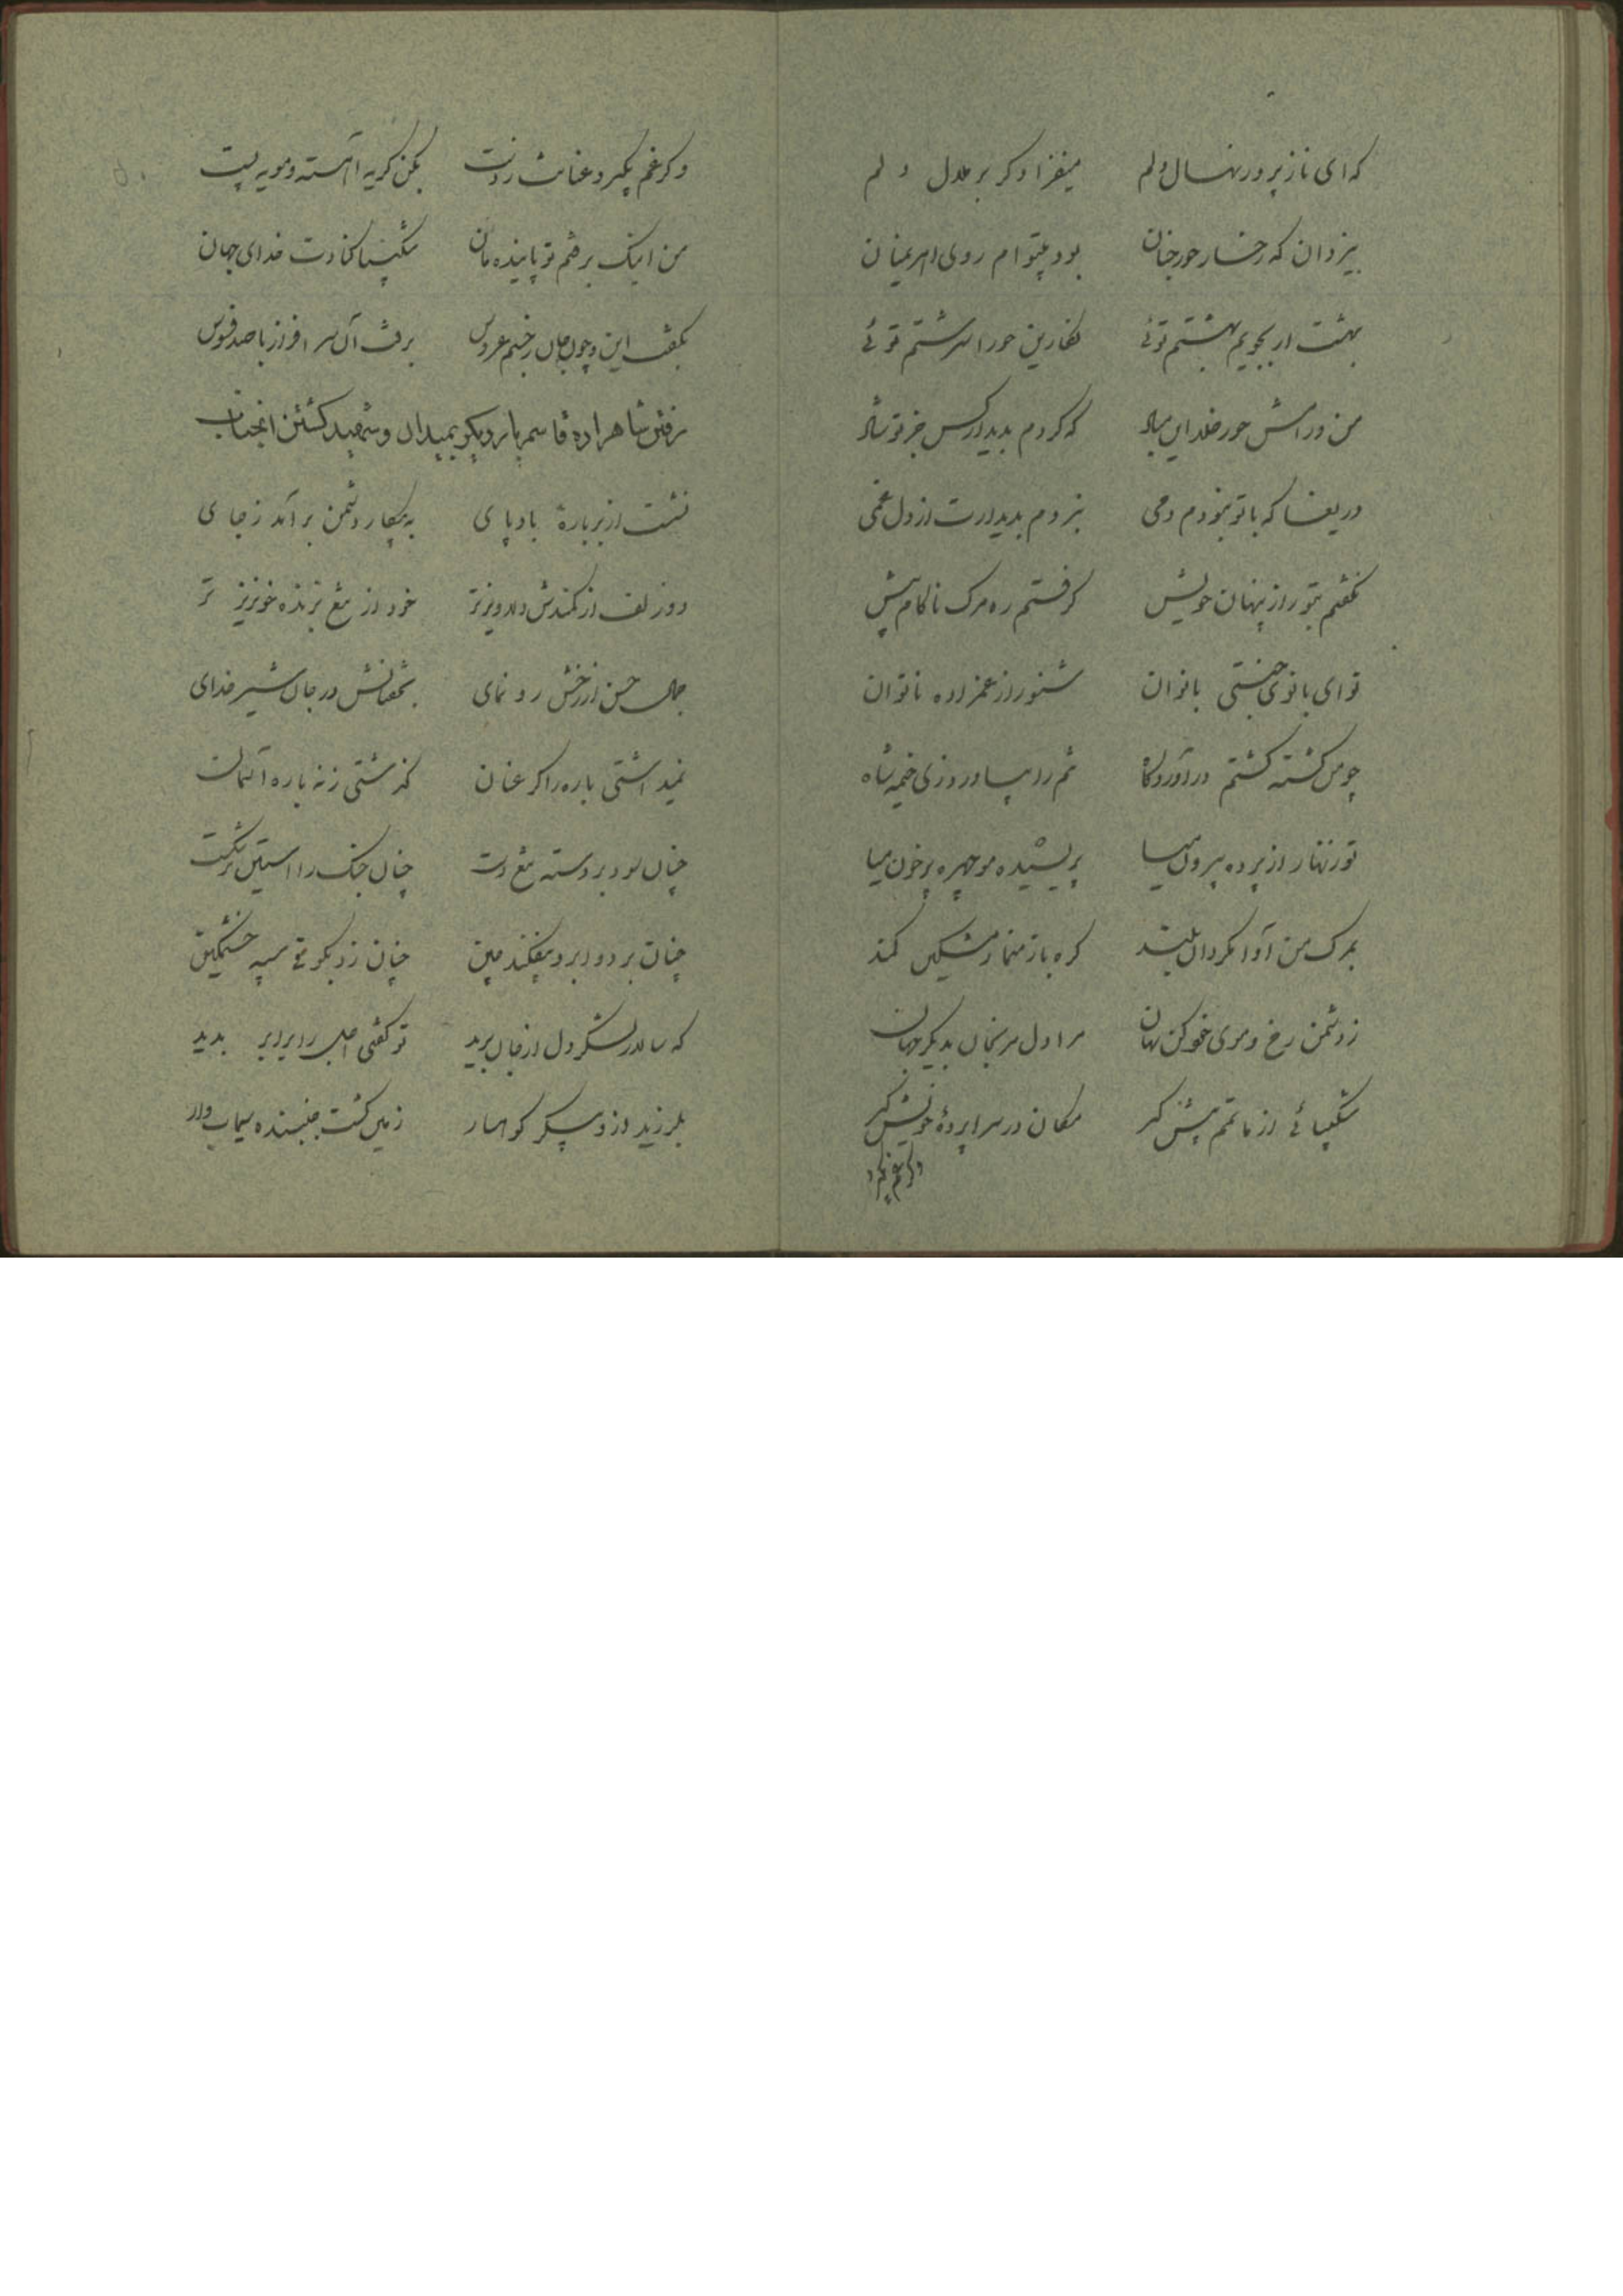 که ای نازپرور نهال دلم میفزا دگر بر ملال دلم
بیزدان که رخسار حور جنان بود بیتو ام روی اهریمنان
بهشت ار بجویم بهشتم توئی نگارین حورا سرشتم توئی
من و رامش حور خلد این مباد که کردم بدیدار کس جز تو شاد
دریغا که با تو نبودم دمی نبردم بدیدارت از دل غمی
نگفتم بتو راز پنهان خویش گرفتم ره مرگ ناکام پیش
تو ای بانوی جنتی بانوان شنو راز عمزاده ناتوان
چو من کشته گشتم در آوردگاه تنم را بیاورد زی خیمه شاه
تو زنهار از پرده بیرون میا پریشیده مو چهره پرخون میا
بمرگ من آوا مگردان بلند گره باز منما ز مشکین کمند
ز دشمن رخ و موی خود کن نهان مرا دل مرنجان بدیگر جهان
شکیبائی از ماتمم پیش گیر مکان در سراپردهٔ خویش گیر
وگر غم بگیرد
وگر غم بگیرد عنانت ز دست بکن گریه آهسته و مویه پست
من اینک برفتم تو پاینده مان شکیبا کنادت خدای جهان
بگفت این و چون جان ز جسم عروس برفت آن سرافراز با صد فسوس
رفتن شاهزاده قاسم با روی نکو بمیدان و شهید گشتن آنجناب
نشست از بر بارهٔ بادپای به پیکار دشمن برآمد ز جای
دو زلف از کمندش دلاویزتر خود از تیغ برنده خونریزتر
جمال حسن از رخش رونمای بخفتانش در جان شیر خدای
نمیداشتی باره را گر عنان گذشتی ز نه باره آسمان
چنان بود بر دسته تیغ دست چنان جنگ را آستین برشکست
چنان بر دو ابرو بیفکند چین چنان زد بگوی سپه خشمگین
که سالار لشکر دل از جان برید تو گفتی اجل را برابر بدید
بلرزید از و پیکر کوهسار زمین گشت جنبنده سیماب وار